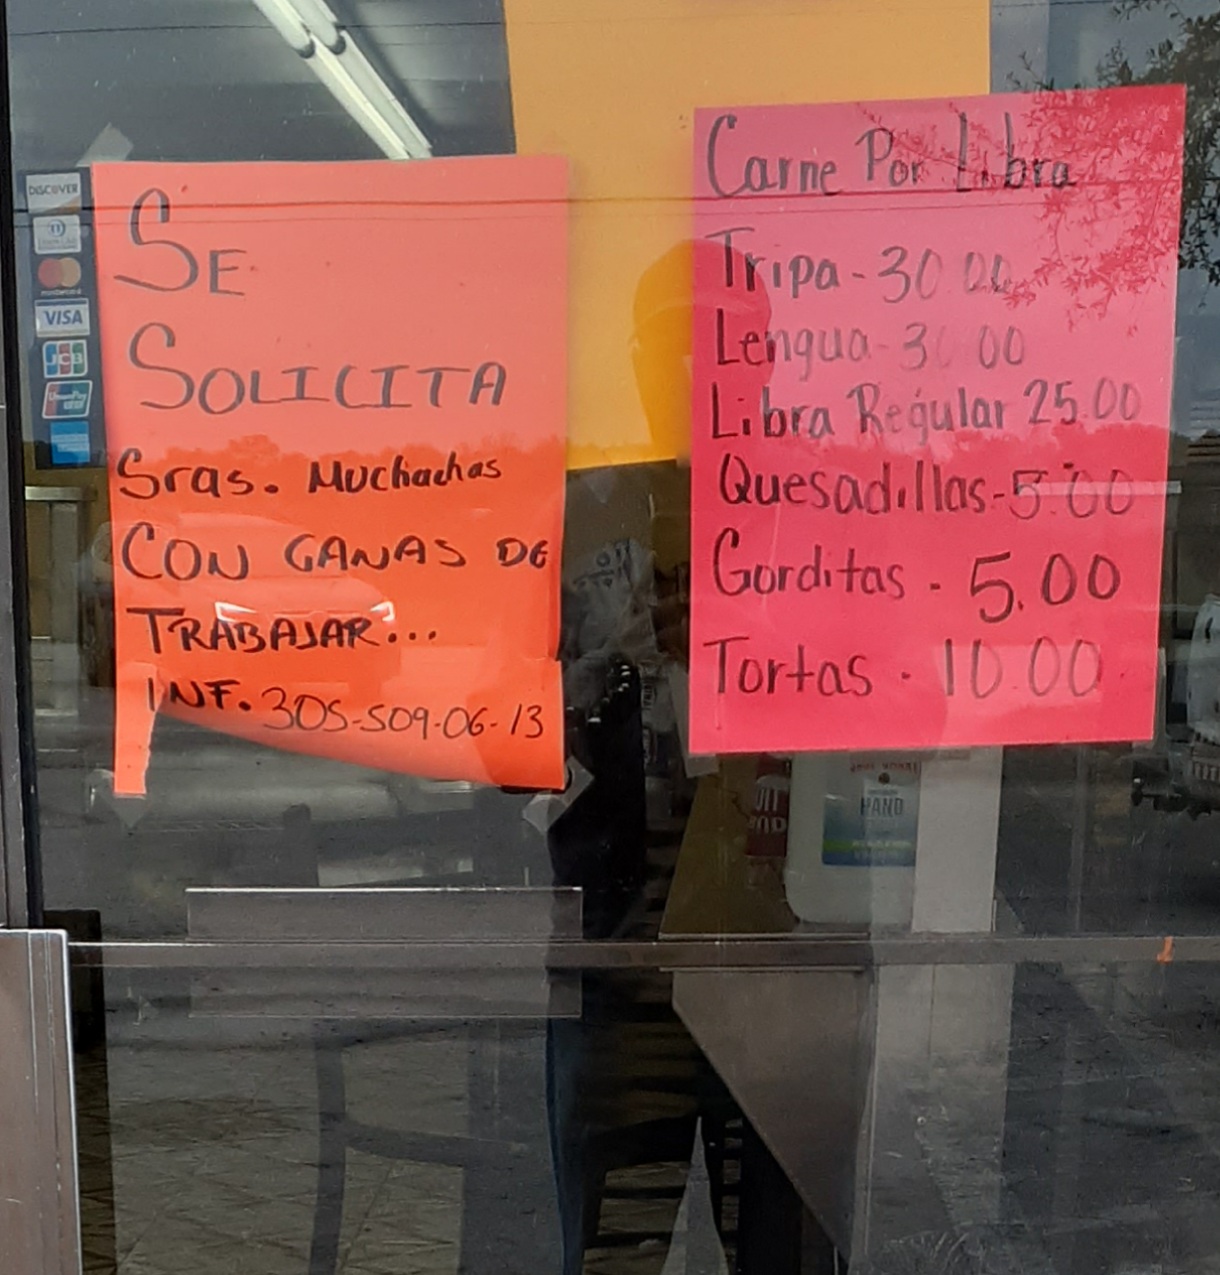 DISCOVER
VISA
JCB
UnionPay
SE
SOLICITA
Sras. Muchachas
CON GANAS DE
TRABAJAR...
INF. 305-509-06-13
Carne Por Libra
Tripa - 30.00
Lengua - 30.00
Libra Regular 25.00
Quesadillas - 5.00
Gorditas - 5.00
Tortas - 10.00
HAND